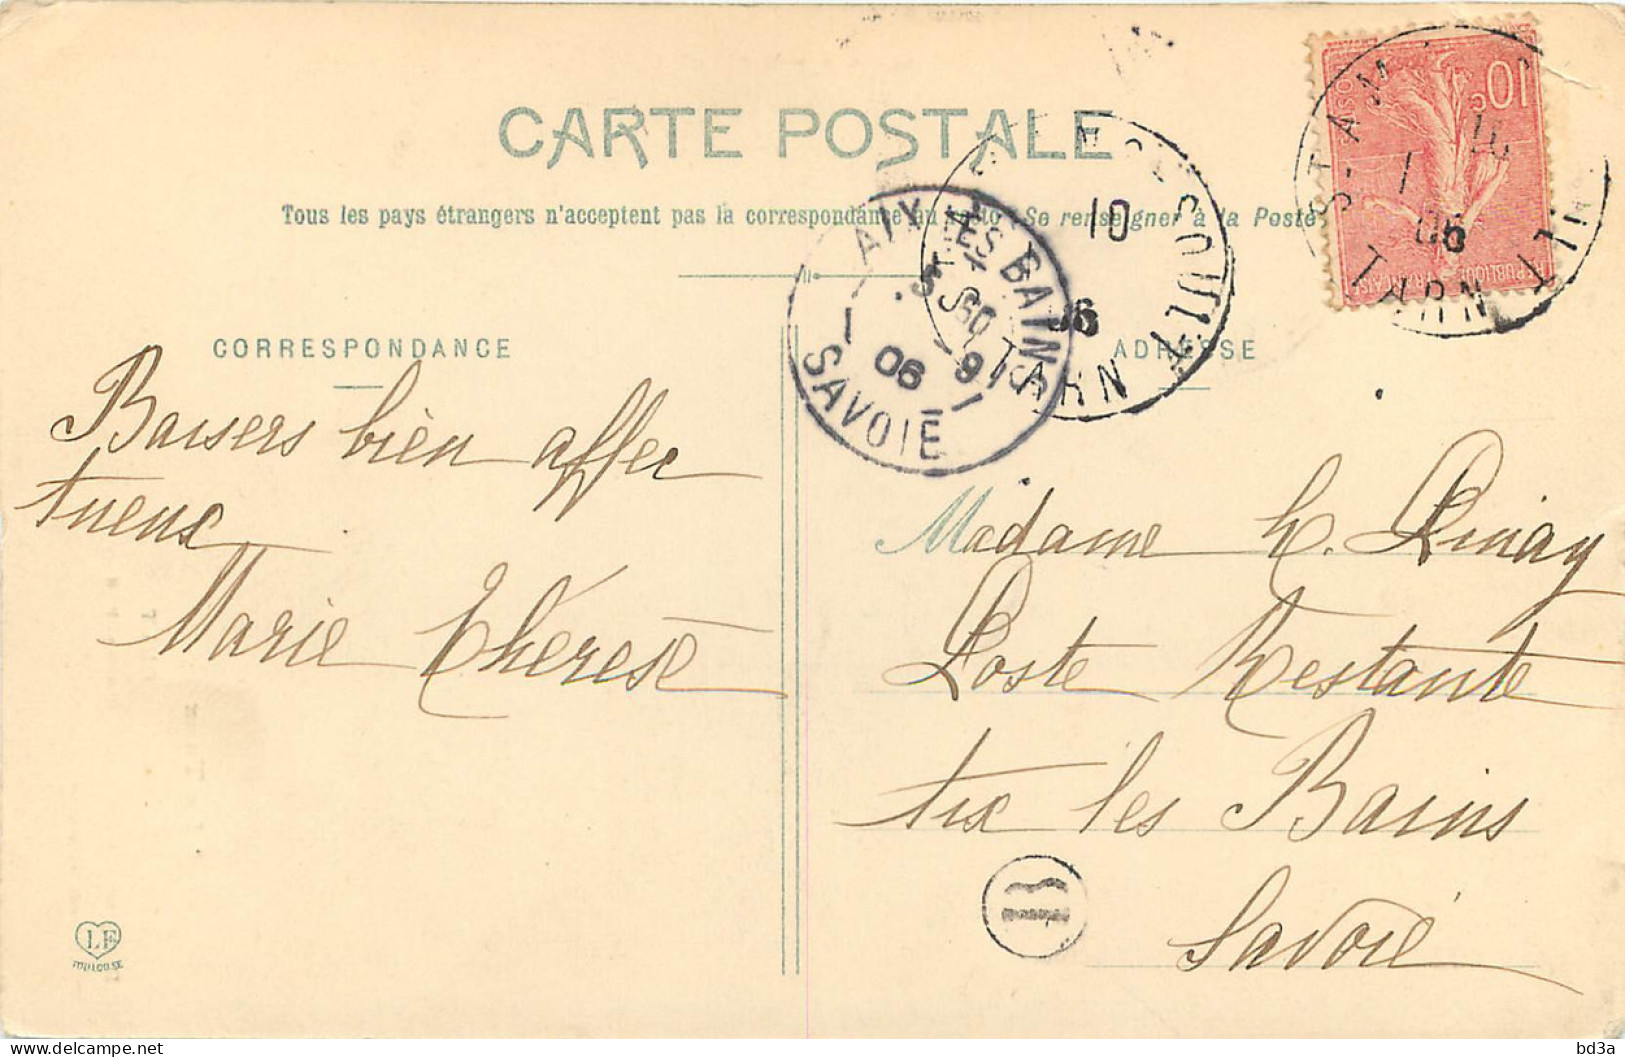 CARTE POSTALE
Tous les pays étrangers n'acceptent pas la correspondance au recto (Se renseigner à la Poste)
CORRESPONDANCE
ADRESSE
Baisers bien affec
tueux
Marie Thérèse
Madame H.
Poste Restante
Aix les Bains
Savoie
AIX LES BAINS
SAVOIE
9
06
10
06
TARN
ST-AM
1
06
TARN
10c
POSTES
REPUBLIQUE FRANÇAISE
LF
TOULOUSE
bd3a